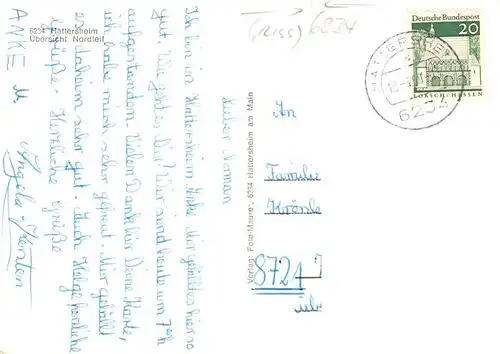 6234 Hattersheim
Übersicht Nordteil
Lieber Norman
Ich bin in Hattersheim Ank. Mir gefällt es hier so
gut. Wie geht es Dir? Wir sind heute um 7 ooh
aufgestanden. Vielen Dank für Deine Karte,
ich habe mich sehr gefreut. Mir gefällt
es daheim sehr gut. Auch Helge herzliche
Grüße. Herzliche Grüße
Angela Kerstin
ANKE u.
Verlag: Foto-Maurer, 6234 Hattersheim am Main
(Riss) 6234
Deutsche Bundespost
20
LORSCH/HESSEN
HATTERSHEIM
6234
An
Familie
8721